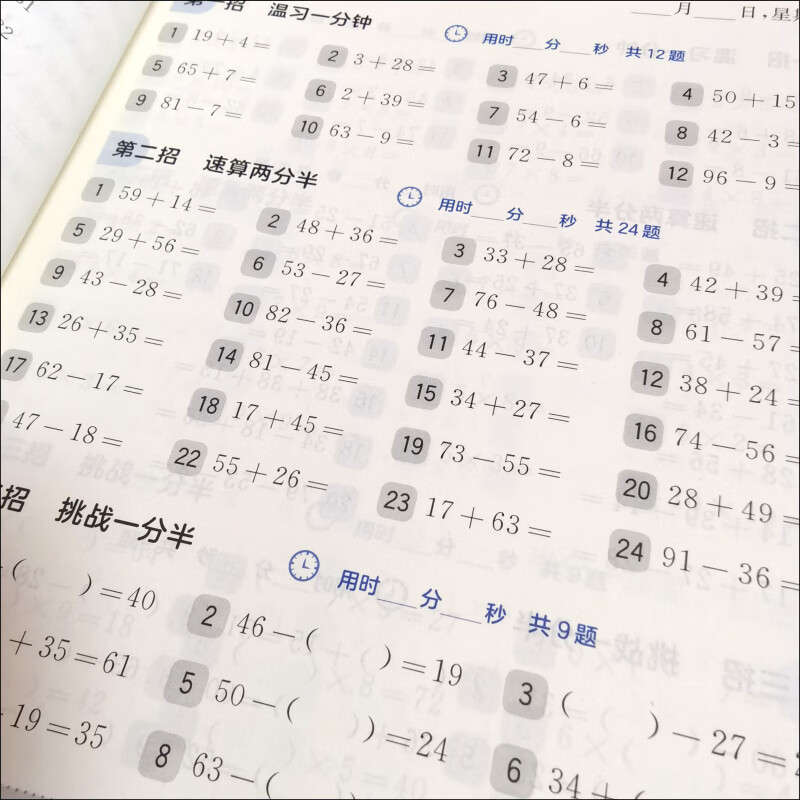 月 日,星
一招 温习一分钟
用时 分 秒 共12题
1 19+4= 2 3+28= 3 47+6= 4 50+15
5 65+7= 6 2+39= 7 54-6= 8 42-3=
9 81-7= 10 63-9= 11 72-8= 12 96-9=
第二招 速算两分半
用时 分 秒 共24题
1 59+14= 2 48+36= 3 33+28= 4 42+39=
5 29+56= 6 53-27= 7 76-48= 8 61-57=
9 43-28= 10 82-36= 11 44-37= 12 38+24=
13 26+35= 14 81-45= 15 34+27= 16 74-56=
17 62-17= 18 17+45= 19 73-55= 20 28+49=
47-18= 22 55+26= 23 17+63= 24 91-36=
招 挑战一分半
用时 分 秒 共9题
( )=40 2 46-( )=19 3 ( )-27=
+35=61 5 50-( )=24 6 34+(
-19=35 8 63-(